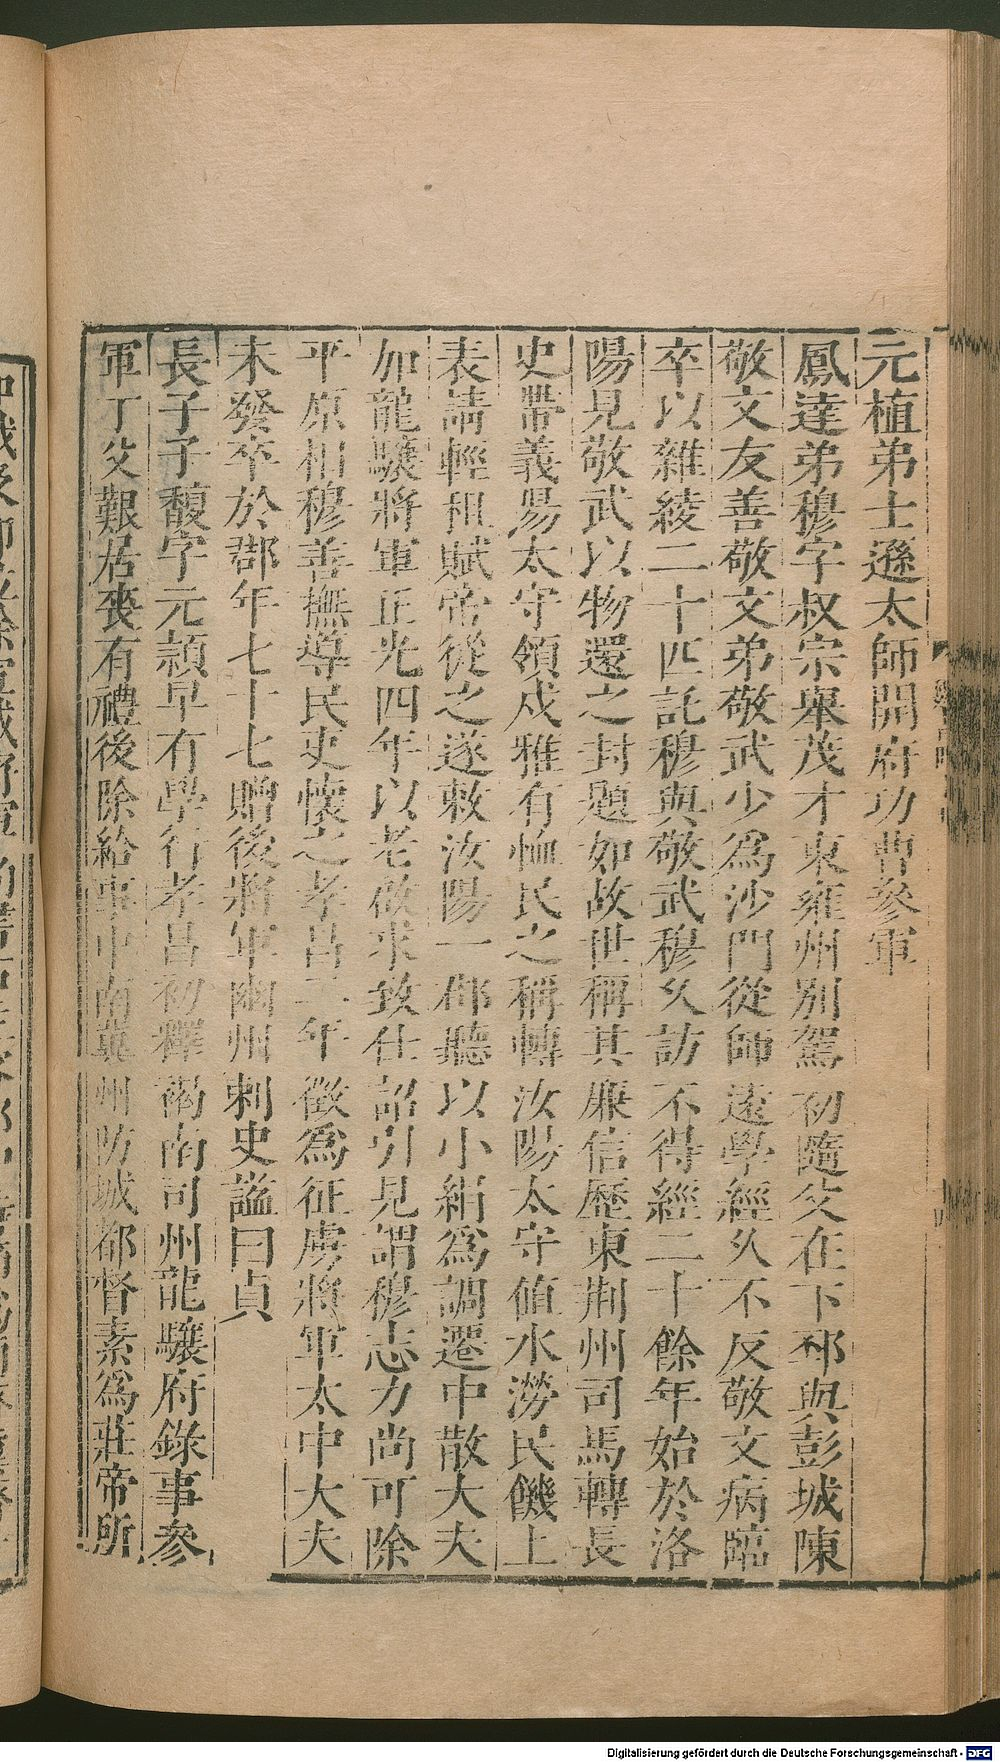 元植弟士遜太師開府功曹參軍
鳳達弟穆字叔宗舉茂才東雍州別駕初隨父在下邳與彭城陳
敬文友善敬文弟敬武少為沙門從師遠學經久不反敬文病臨
卒以雜綾二十匹託穆與敬武穆久訪不得經二十餘年始於洛
陽見敬武以物還之封題如故世稱其廉信歷東荆州司馬轉長
史帶義陽太守領戍雅有恤民之稱轉汝陽太守值水澇民饑上
表請輕租賦帝從之遂敕汝陽一郡聽以小絹為調遷中散大夫
加龍驤將軍正光四年以老啟求致仕詔引見謂穆志力尚可除
平原相穆善撫導民吏懷之孝昌二年徵為征虜將軍太中大夫
未發卒於郡年七十七贈後將軍幽州刺史謚曰貞
長子子馥字元頴早有學行孝昌初釋褐南司州龍驤府錄事參
軍丁父艱居喪有禮後除給事中南冀州防城都督素為莊帝所
Digitalisierung gefördert durch die Deutsche Forschungsgemeinschaft - DFG